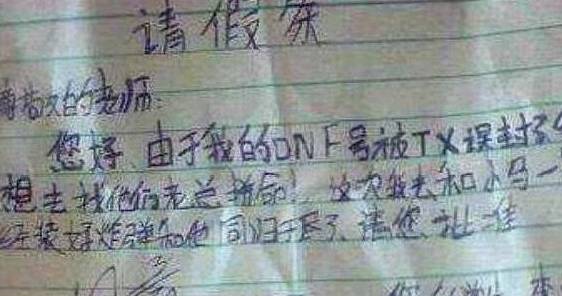 请假条
尊敬的老师:
您好,由于我的DNF号被TX误封了
想去找他们老总拼命!这次我去和小马一
装好炸弹和他同归于尽了,请您批准